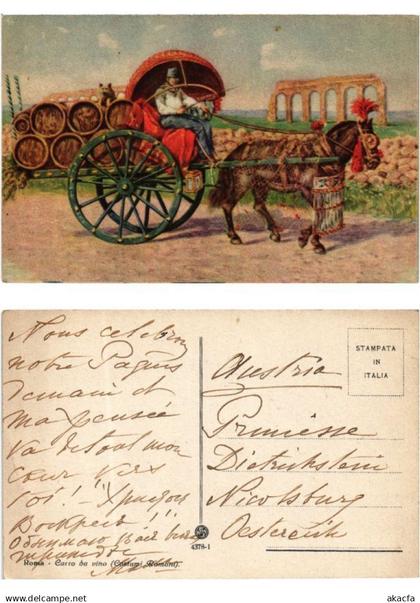 Nous celebrons
notre Pâques
demain et
ma pensée
va de tout mon
cœur vers
toi! "Христосъ
Воскресъ"!!!
Обнимаю
STAMPATA
IN
ITALIA
Austria
Princesse
Dietrichstein
Nicolsburg
Oesterreich
4378-1
Roma - Carro da vino (Costumi Romani).
www.akacfa.com